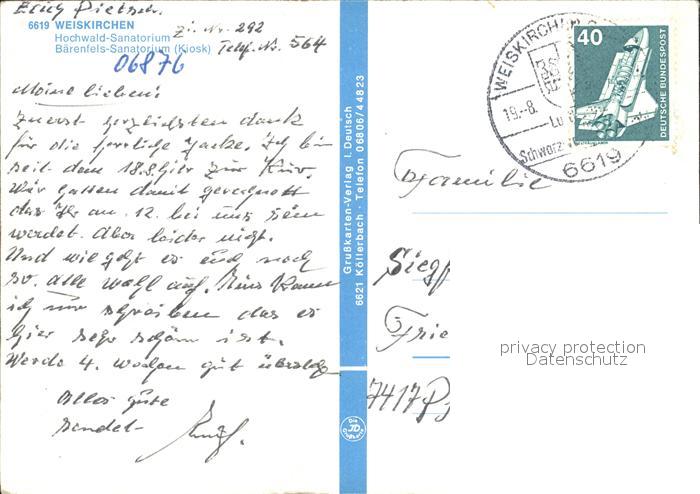 6619 WEISKIRCHEN
Hochwald-Sanatorium
Bärenfels-Sanatorium (Kiosk)
Zi. Nr. 292
Telef. Nr. 564
06876
Meine lieben!
Zuerst herzlichsten dank
für die herrliche Jacke. Ich bin
seit dem 18.8. hier zur Kur.
Wir hatten damit gerechnett
das Ihr am 12. bei uns sein
werdet. Aber leider nicht.
Und wie geht es euch noch
so. alle wohl auf.
ich nur schreiben das es
hier sehr schön ist.
Werde 4. wochen gut
Alles gute
sendet
Grußkarten-Verlag I. Deutsch
6621 Köllerbach · Telefon 06806/44823
WEISKIRCHEN
19.-8.
6619
40
DEUTSCHE BUNDESPOST
Familie
Siegf
Frie
7417
privacy protection
Datenschutz